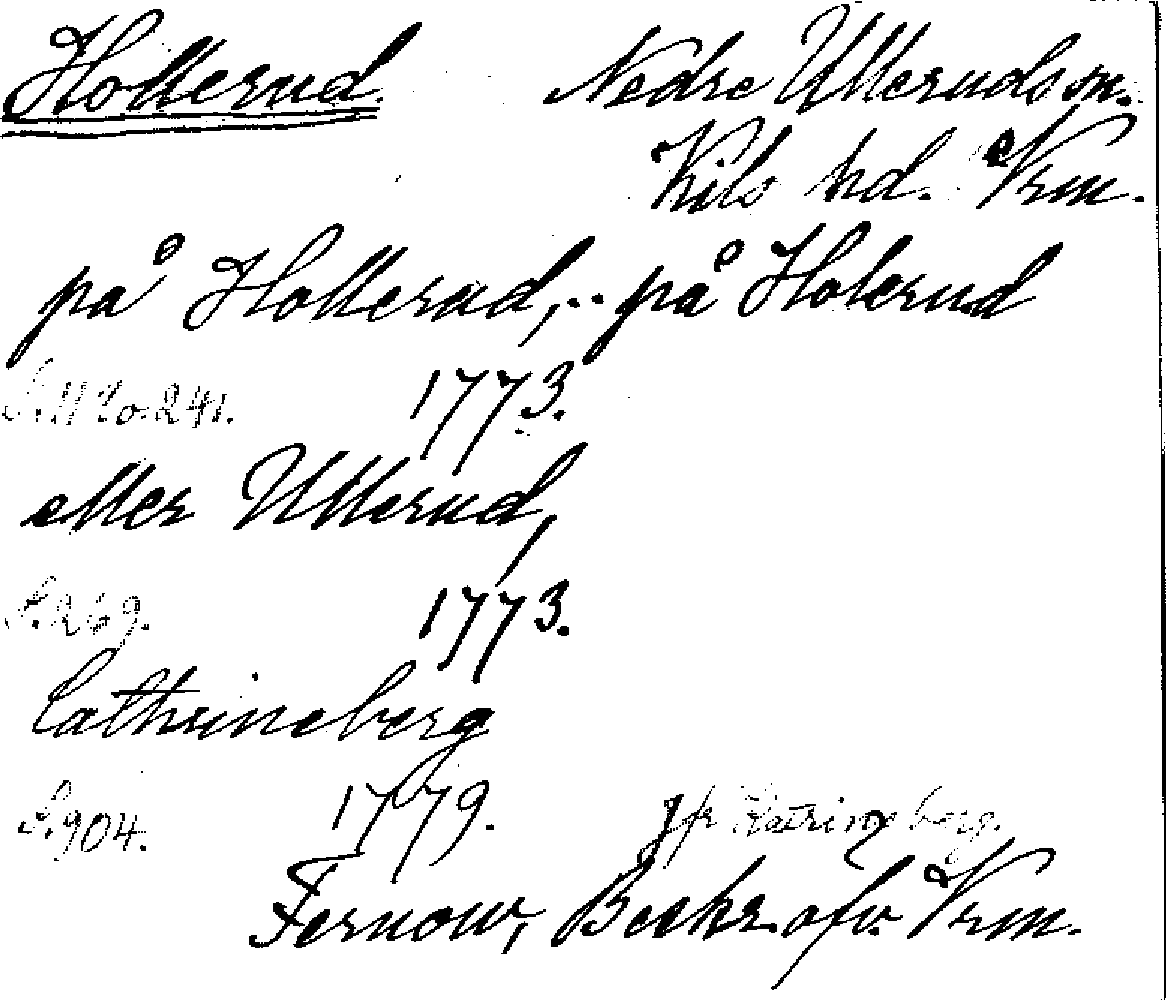 Hollerud Nedre Ulleruds sn.
Kils hd. Vrm.
på Hollerud, .. på Holerud
S. 1120. 241. 1773.
eller Ullerud,
S. 269. 1773.
Cathrineberg
S. 904. 1779. Jfr Katrineberg.
Fernow, Beskr. afv. Vrm.